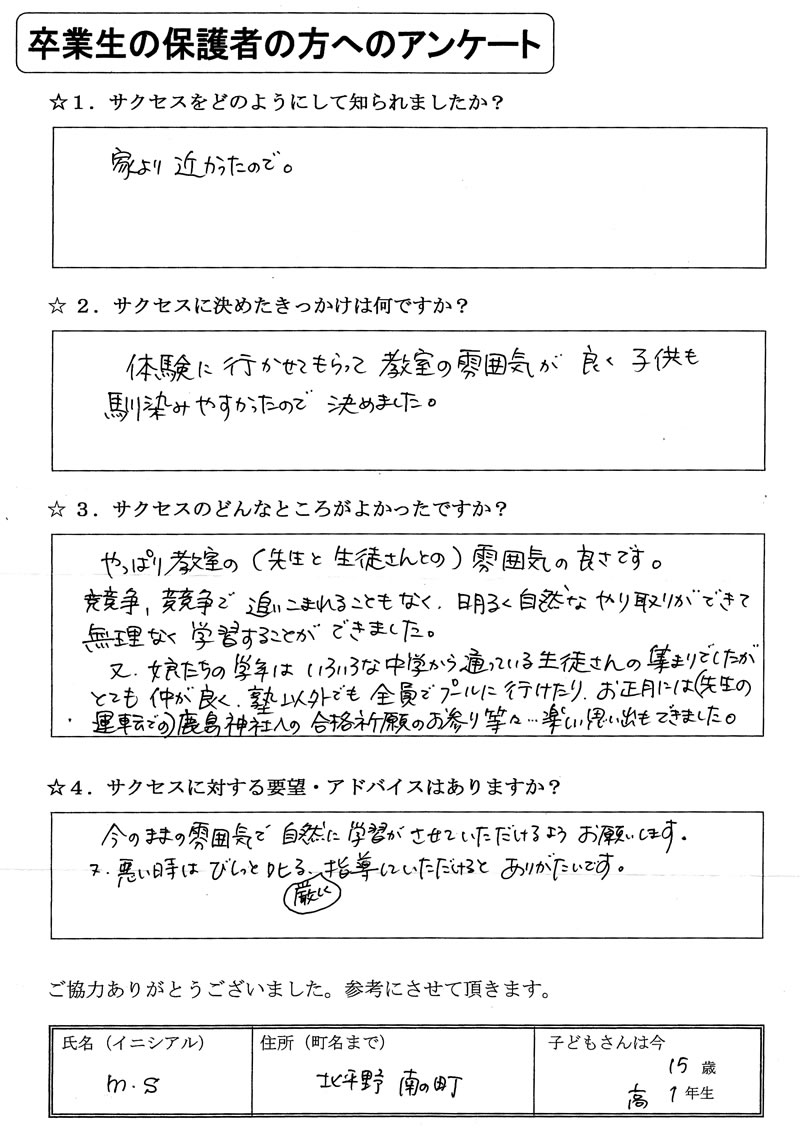 卒業生の保護者の方へのアンケート
☆１．サクセスをどのようにして知られましたか？
家より近かったので。
☆ ２．サクセスに決めたきっかけは何ですか？
体験に行かせてもらって教室の雰囲気が良く子供も
馴染みやすかったので決めました。
☆ ３．サクセスのどんなところがよかったですか？
やっぱり教室の（先生と生徒さんとの）雰囲気の良さです。
競争，競争で追いこまれることもなく，明るく自然なやり取りができて
無理なく学習することができました。
又，娘たちの学年はいろいろな中学から通っている生徒さんの集まりでしたが
とても仲が良く，塾以外でも全員でプールに行けたり，お正月には（先生の
運転での）鹿島神社への合格祈願のお参り等々…楽しい思い出もできました。
☆４．サクセスに対する要望・アドバイスはありますか？
今のままの雰囲気で自然に学習がさせていただけるようお願いします．
又，悪い時はびしっと叱る，指導していただけるとありがたいです。
厳しく
ご協力ありがとうございました。参考にさせて頂きます。
氏名（イニシアル） 住所（町名まで） 子どもさんは今
m.s 北平野 南の町 15 歳
高 1 年生